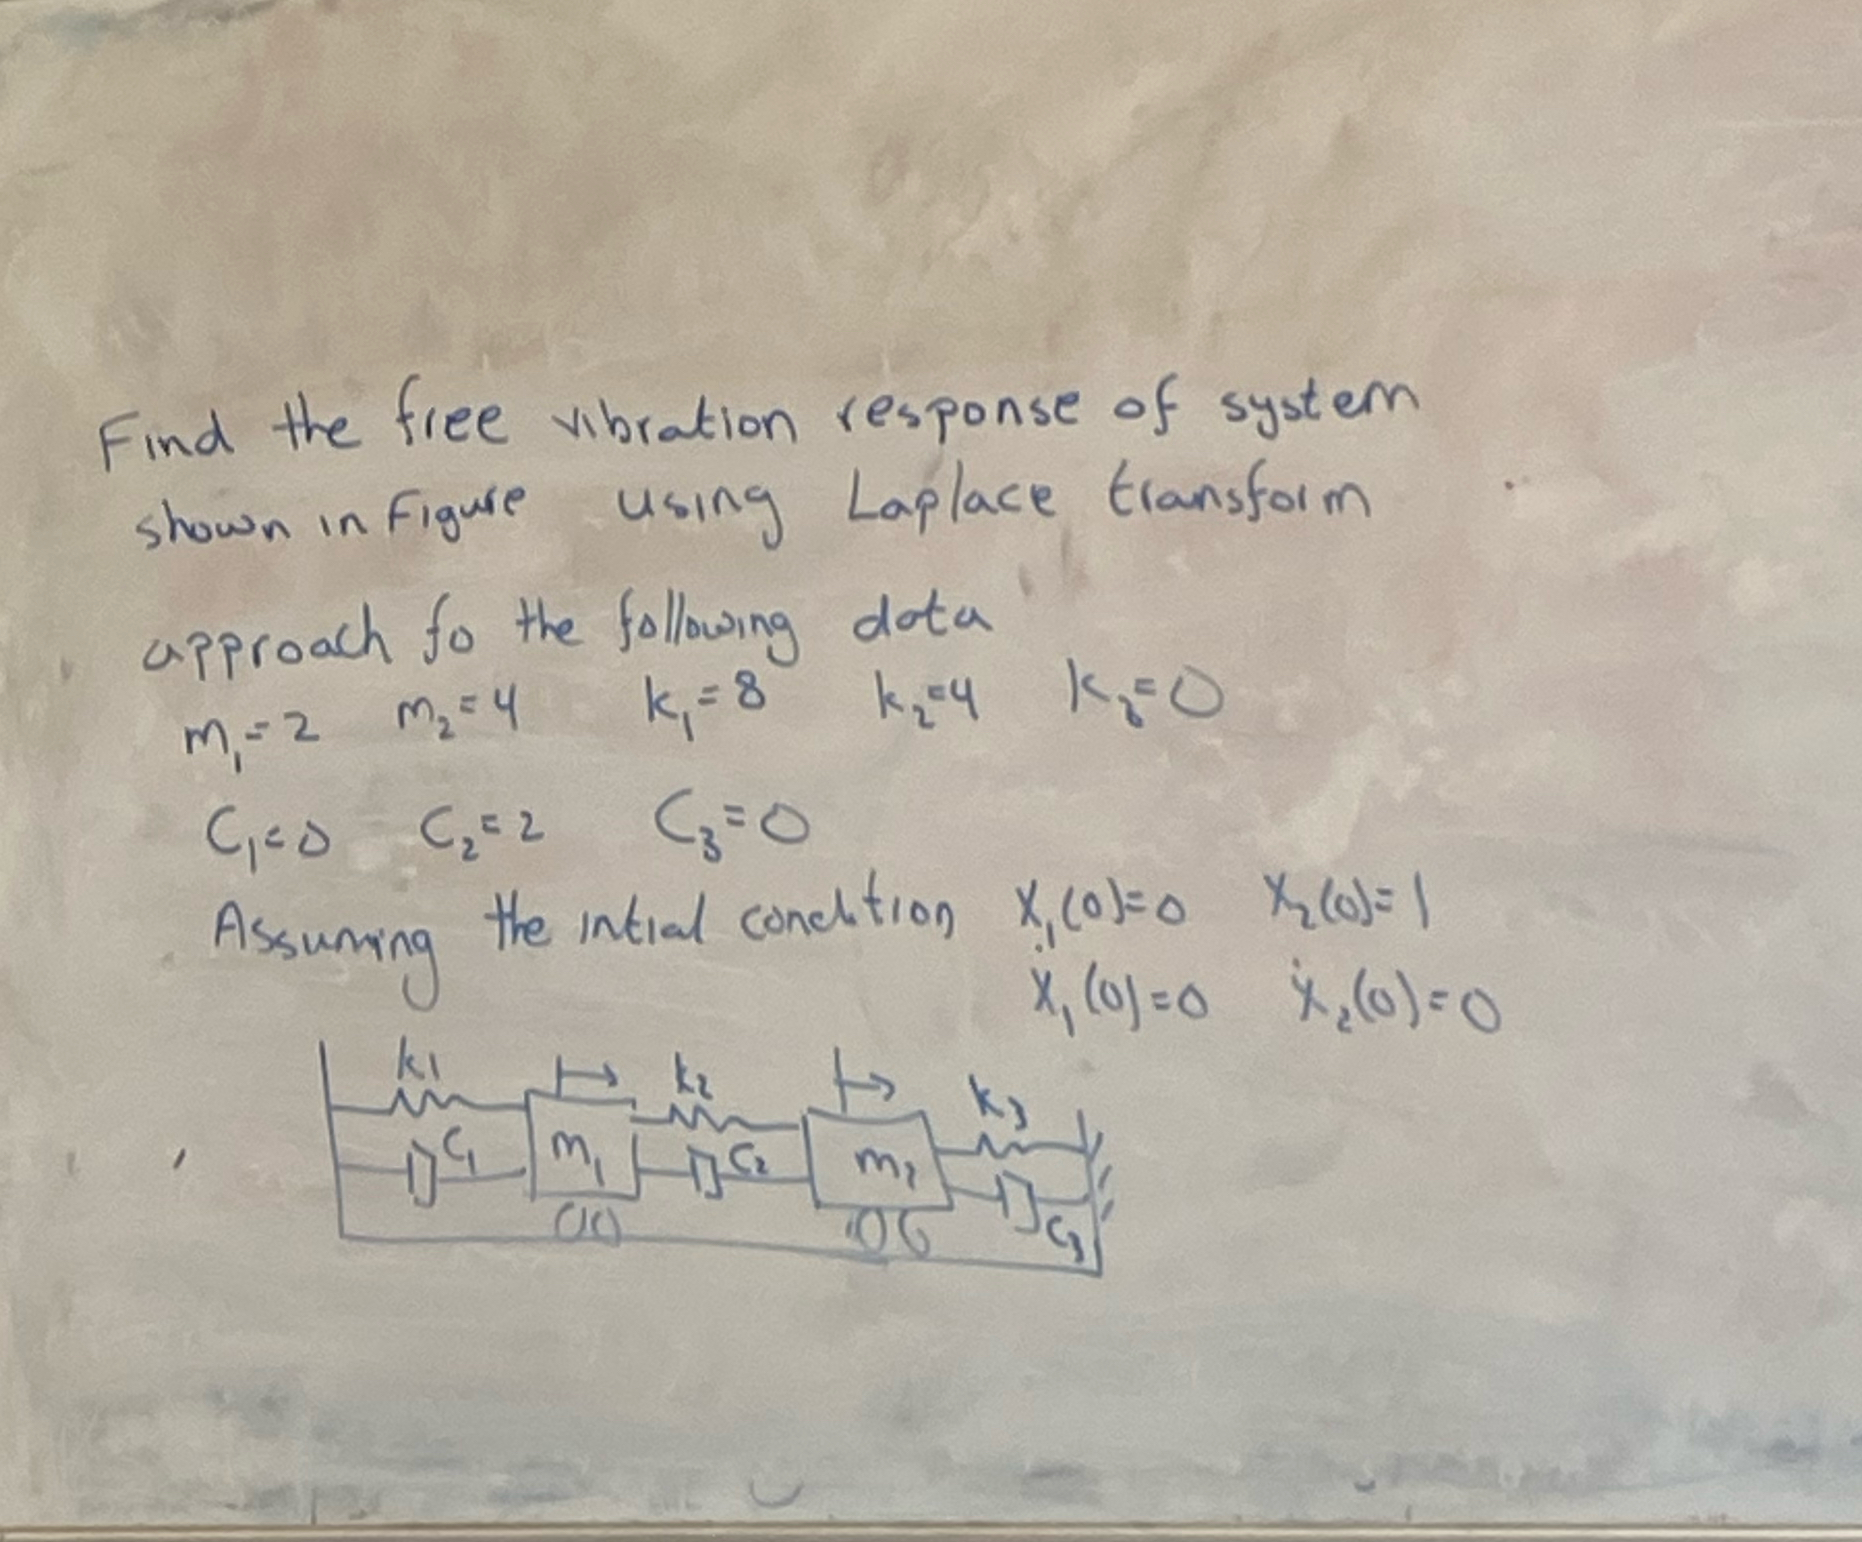 Find the free vibration response of system
shown in Figure using Laplace transform
approach fo the following data
m₁=2 m₂=4 k₁=8 k₂=4 k₃=0
C₁=0 C₂=2 C₃=0
Assuming the intial condition X₁(0)=0 X₂(0)=1
Ẋ₁(0)=0 Ẋ₂(0)=0
k1 k2 k3
C₁ m₁ C₂ m₂
C₃